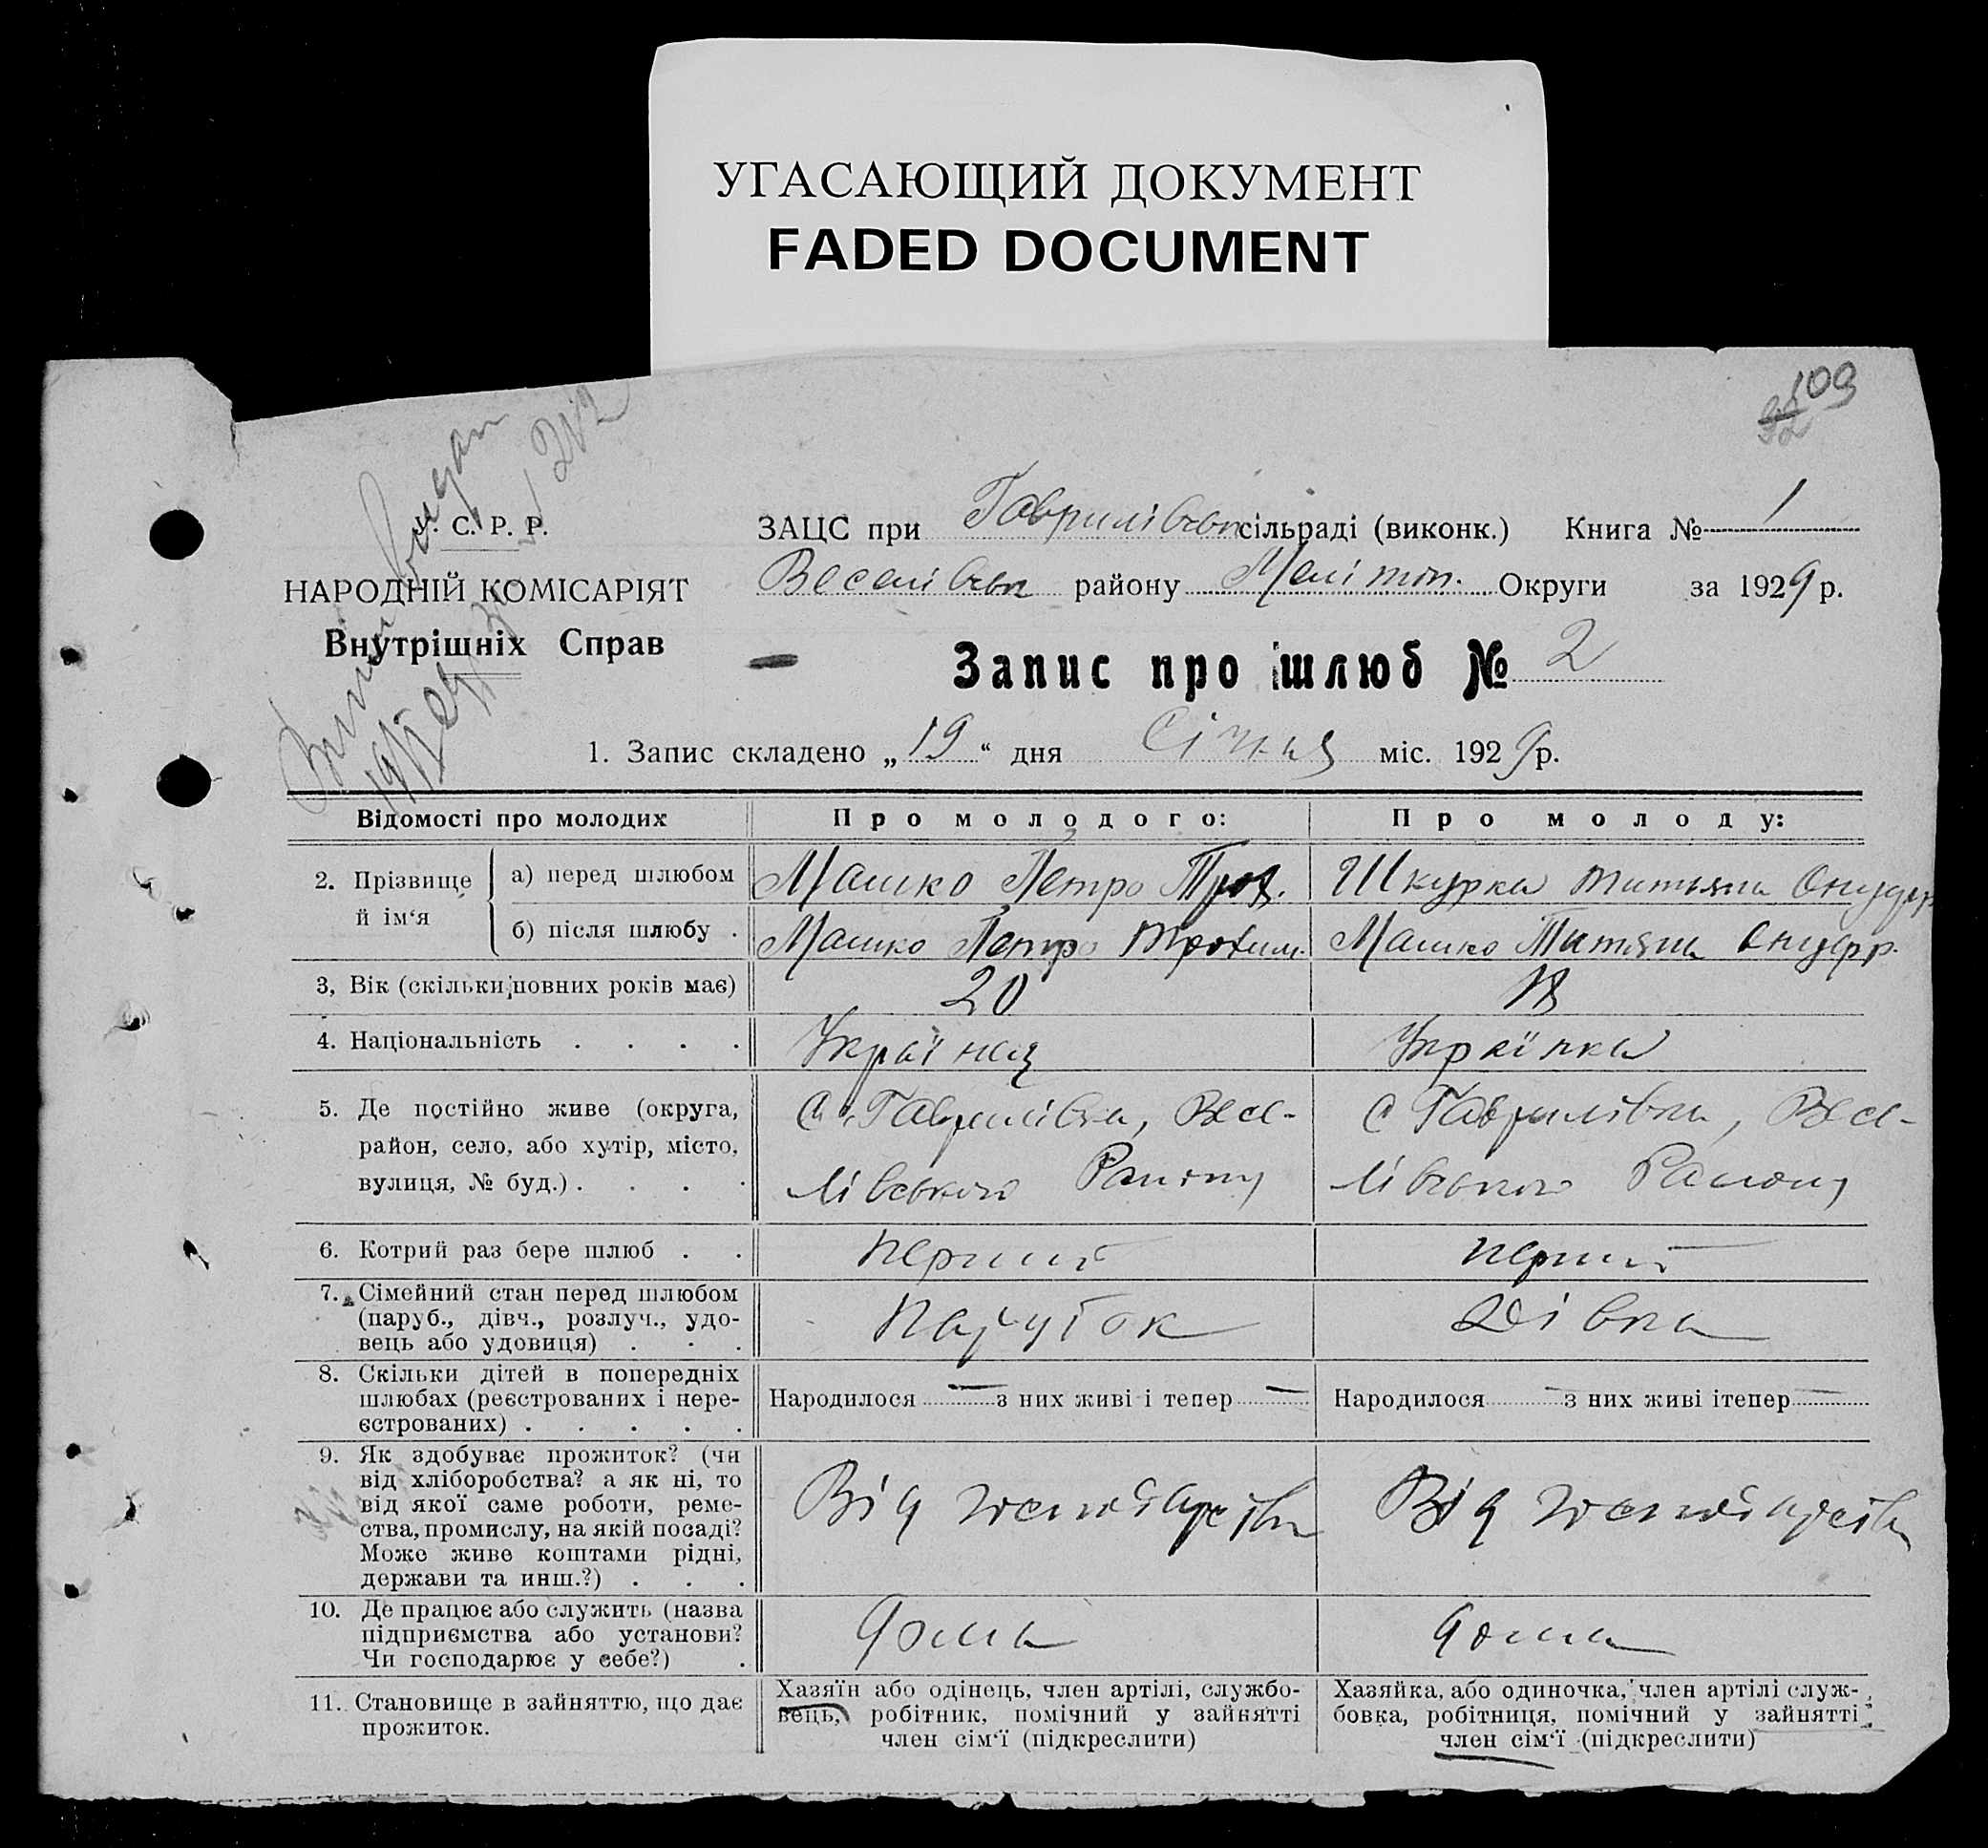 УГАСАЮЩИЙ ДОКУМЕНТ
FADED DOCUMENT
109
У. С. Р. Р.
НАРОДНІЙ КОМІСАРІЯТ
Внутрішніх Справ
ЗАЦС при Гаврилівськ сільраді (виконк.) Книга № 1
Веселівськ району Мелітоп. Округи за 1929 р.
Запис про шлюб № 2
1. Запис складено „19“ дня Січня міс. 1929 р.
Відомості про молодих Про молодого: Про молоду:
2. Прізвище й ім‘я
а) перед шлюбом Машко Петро Троф. Шкурка Титяна
б) після шлюбу . Машко Петро Трофим. Машко Титяна
3, Вік (скільки повних років має) 20 18
4. Національність . . . . Українец Українка
5. Де постійно живе (округа,
район, село, або хутір, місто,
вулиця, № буд.) . . . .
с. Гаврилівка, Весе-
лівського Району
с Гаврилівка, Весе-
лівського Району
6. Котрий раз бере шлюб . . перший перший
7. Сімейний стан перед шлюбом
(паруб., дівч., розлуч., удо-
вець або удовиця) . . .
парубок Дівка
8. Скільки дітей в попередніх
шлюбах (реєстрованих і нере-
єстрованих) . . . . .
Народилося — з них живі і тепер —
Народилося — з них живі ітепер —
9. Як здобуває прожиток? (чи
від хліборобства? а як ні, то
від якої саме роботи, реме-
ства, промислу, на якій посаді?
Може живе коштами рідні,
держави та инш.?) . . .
Від Від
10. Де працює або служить (назва
підприємства або установи?
Чи господарює у себе?) .
дома дома
11. Становище в зайняттю, що дає
прожиток.
Хазяїн або одінець, член артілі, службо-
вець, робітник, помічний у зайнятті
член сім‘ї (підкреслити)
Хазяйка, або одиночка, член артілі служ-
бовка, робітниця, помічний у зайнятті
член сім‘ї (підкреслити)